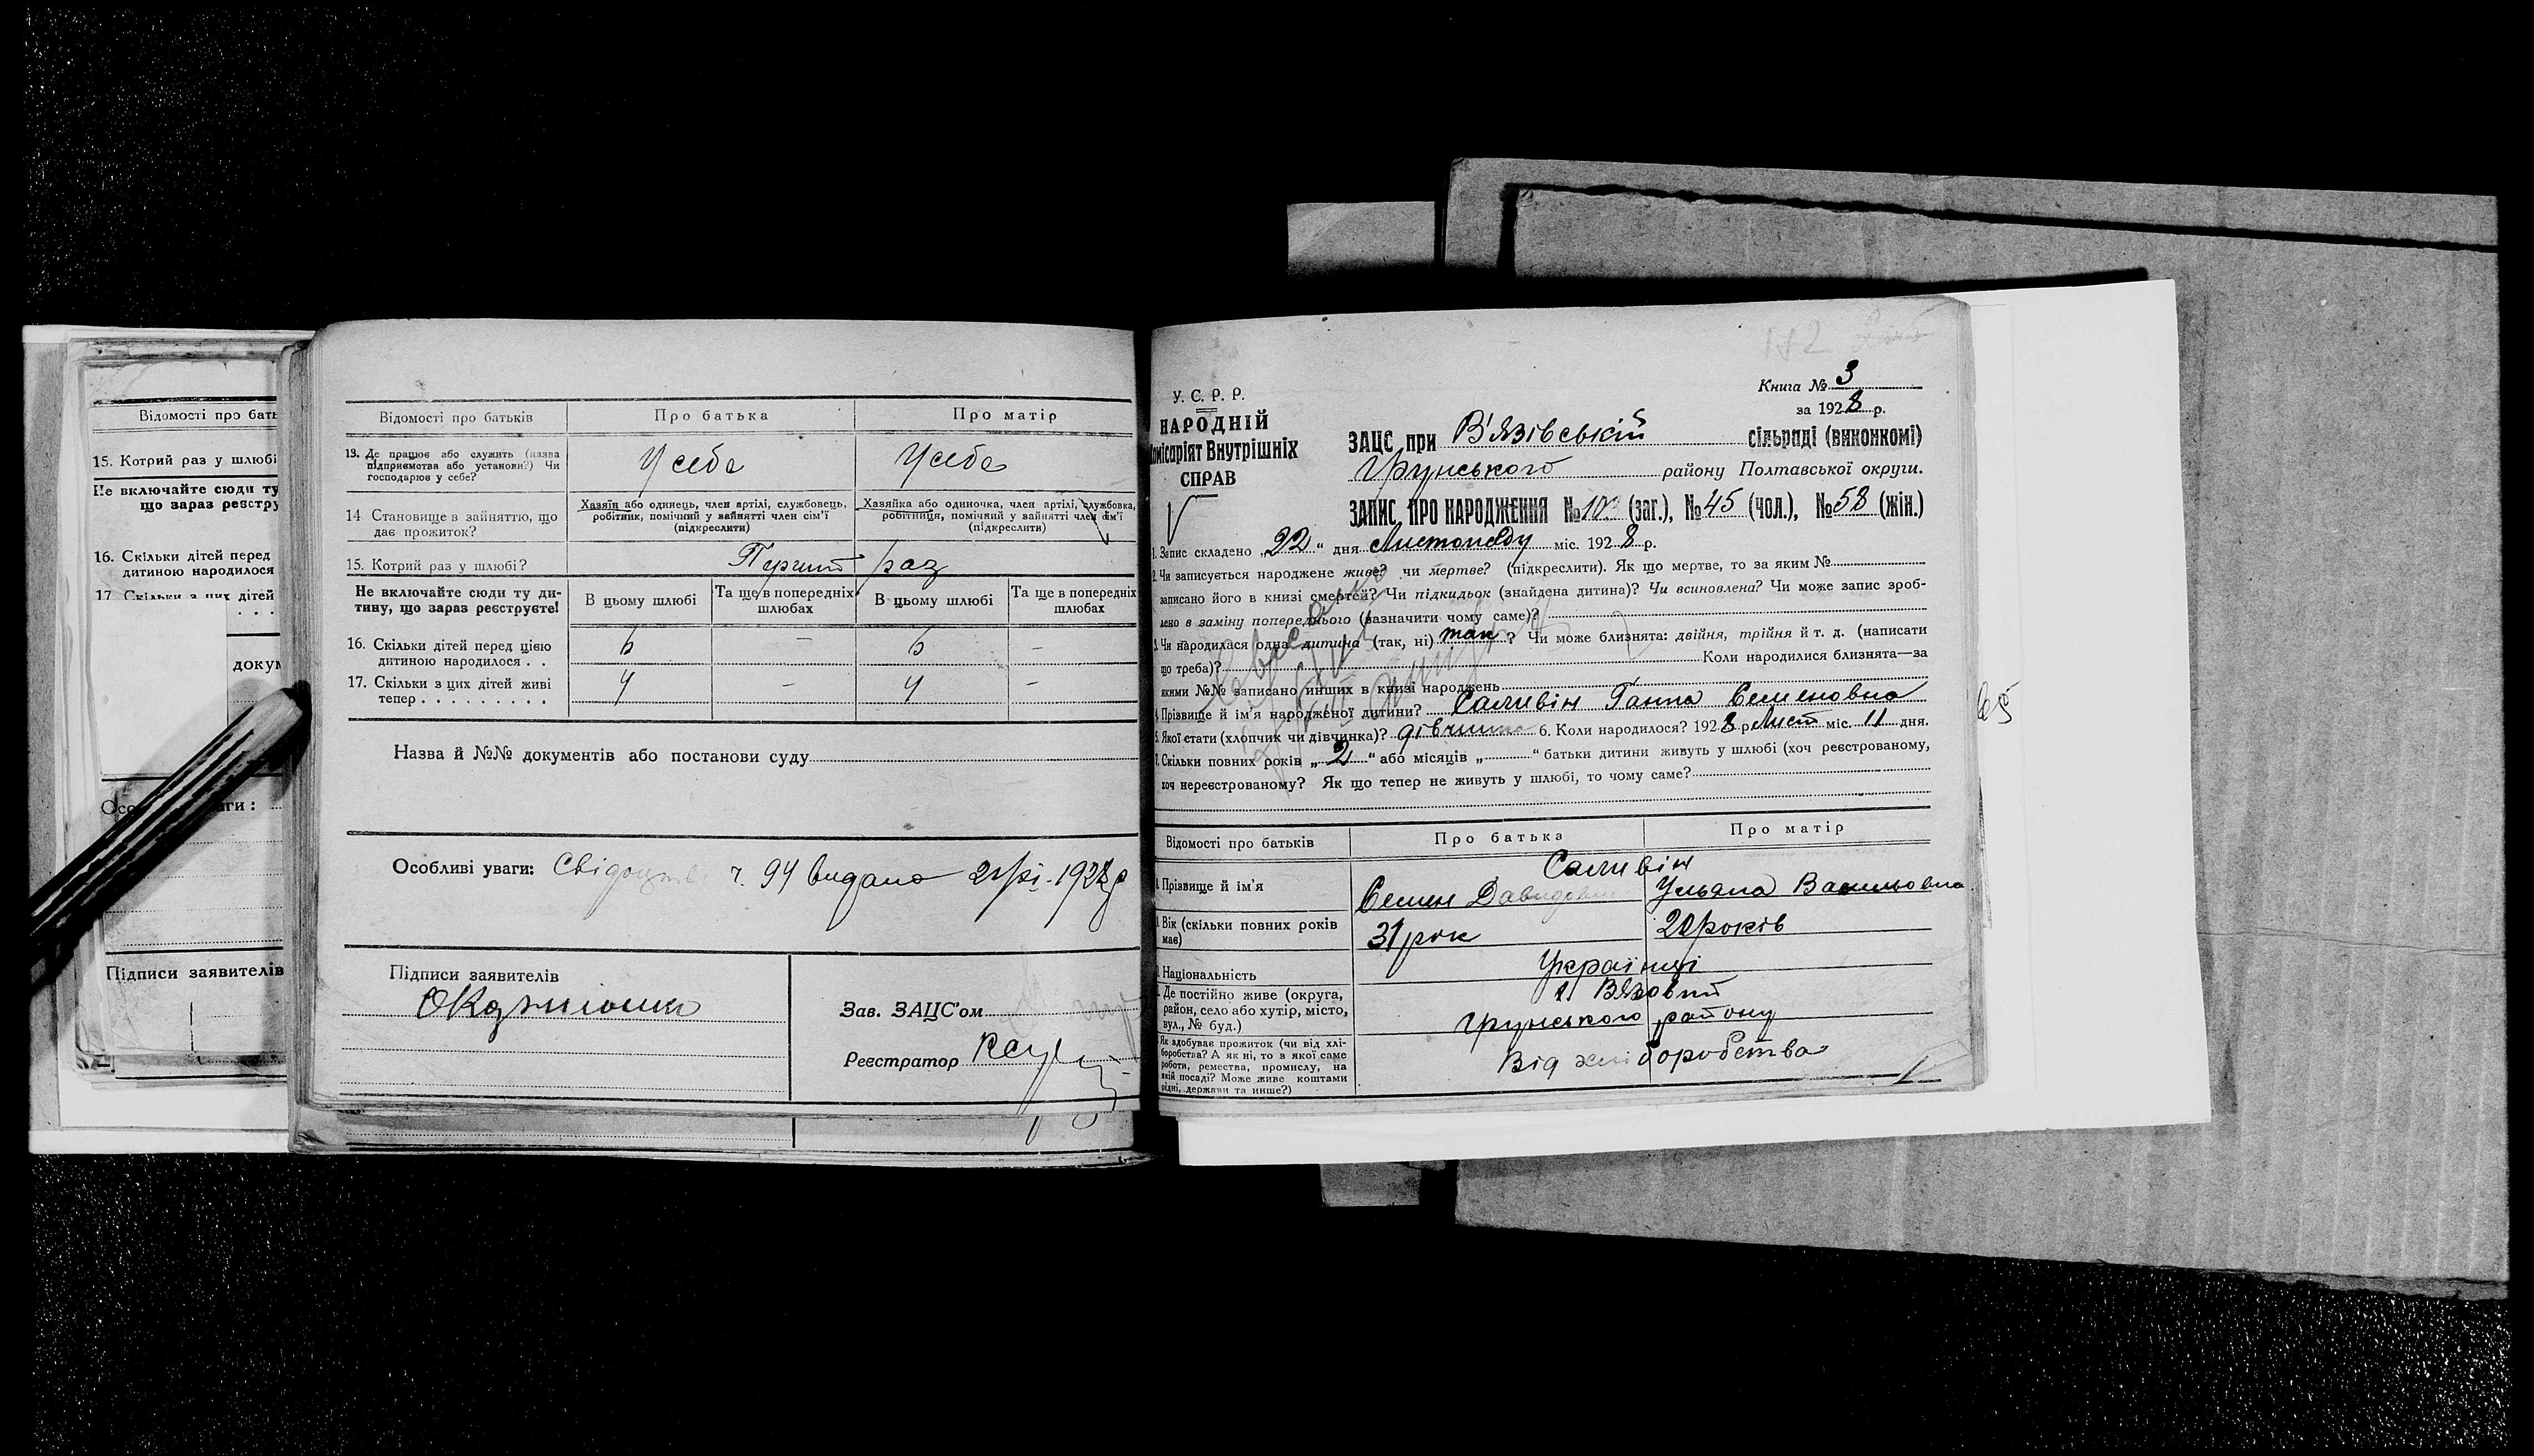 Відомості про бать
15. Котрий раз у шлюбі
Не включайте сюди ту
що зараз реєстру
16. Скільки дітей перед
дитиною народилося
17. Скільки з цих дітей
. . .
докум
Осо ги :
Підписи заявителів
Відомості про батьків
Про батька
Про матір
13. Де працює або служить (назва
підприємства або установи?) Чи
господарює у себе?
У себе
У себе
14 Становище в зайняттю, що
дає прожиток?
Хазяїн або одинець, член артілі, службовець,
робітник, помічний у зайнятті член сім'ї
(підкреслити)
Хазяйка або одиночка, член артілі, службовка,
робітниця, помічний у зайнятті член сім'ї
(підкреслити)
15. Котрий раз у шлюбі?
Перший раз
Не включайте сюди ту ди-
тину, що зараз реєструєте!
В цьому шлюбі
Та ще в попередніх
шлюбах
В цьому шлюбі
Та ще в попередніх
шлюбах
16. Скільки дітей перед цією
дитиною народилося . .
6 – 6 –
17. Скільки з цих дітей живі
тепер . . . . . . . . .
4 – 4 –
Назва й №№ документів або постанови суду
Особливі уваги: Свідоцтво ч. 94 видано
Підписи заявителів
Зав. ЗАЦС'ом
Реєстратор
У. С. Р. Р.
НАРОДНІЙ
Комісаріят Внутрішніх
СПРАВ
Книга № 3
за 1928 р.
ЗАЦС при В'язівській сільраді (виконкомі)
Грунського району Полтавської округи.
ЗАПИС ПРО НАРОДЖЕННЯ № 103 (заг.), № 45 (чол.), № 58 (жін.)
1. Запис складено „22“ дня Листопаду міс. 1928 р.
2. Чи записується народжене живе? чи мертве? (підкреслити). Як що мертве, то за яким №
записано його в книзі смертей? Чи підкидьок (знайдена дитина)? Чи всиновлена? Чи може запис зроб-
лено в заміну попереднього (зазначити чому саме)?
3. Чи народилася одна дитина (так, ні) так? Чи може близнята: двійня, трійня й т. д. (написати
що треба)? Коли народилися близнята—за
якими №№ записано инших в книзі народжень
4. Прізвище й ім'я народженої дитини? Саливін Ганна Семеновна
5. Якої стати (хлопчик чи дівчинка)? дівчинка 6. Коли народилося? 1928 р. Лист міс. 11 дня.
7. Скільки повних років „2“ або місяців „ “ батьки дитини живуть у шлюбі (хоч реєстрованому,
хоч нереєстрованому? Як що тепер не живуть у шлюбі, то чому саме?
Відомості про батьків
Про батька
Про матір
Саливін
Прізвище й ім'я
Семен Давидович
Ульяна Васильовна
Вік (скільки повних років
має)
31 рок
20 років
Національність
Українці
Де постійно живе (округа,
район, село або хутір, місто,
вул., № буд.)
Вязовий
Грунського району
Як здобуває прожиток (чи від хлі-
боробства? А як ні, то з якої саме
роботи, ремества, промислу, на
якій посаді? Може живе коштами
рідні, держави та инше?)
Від хліборобства